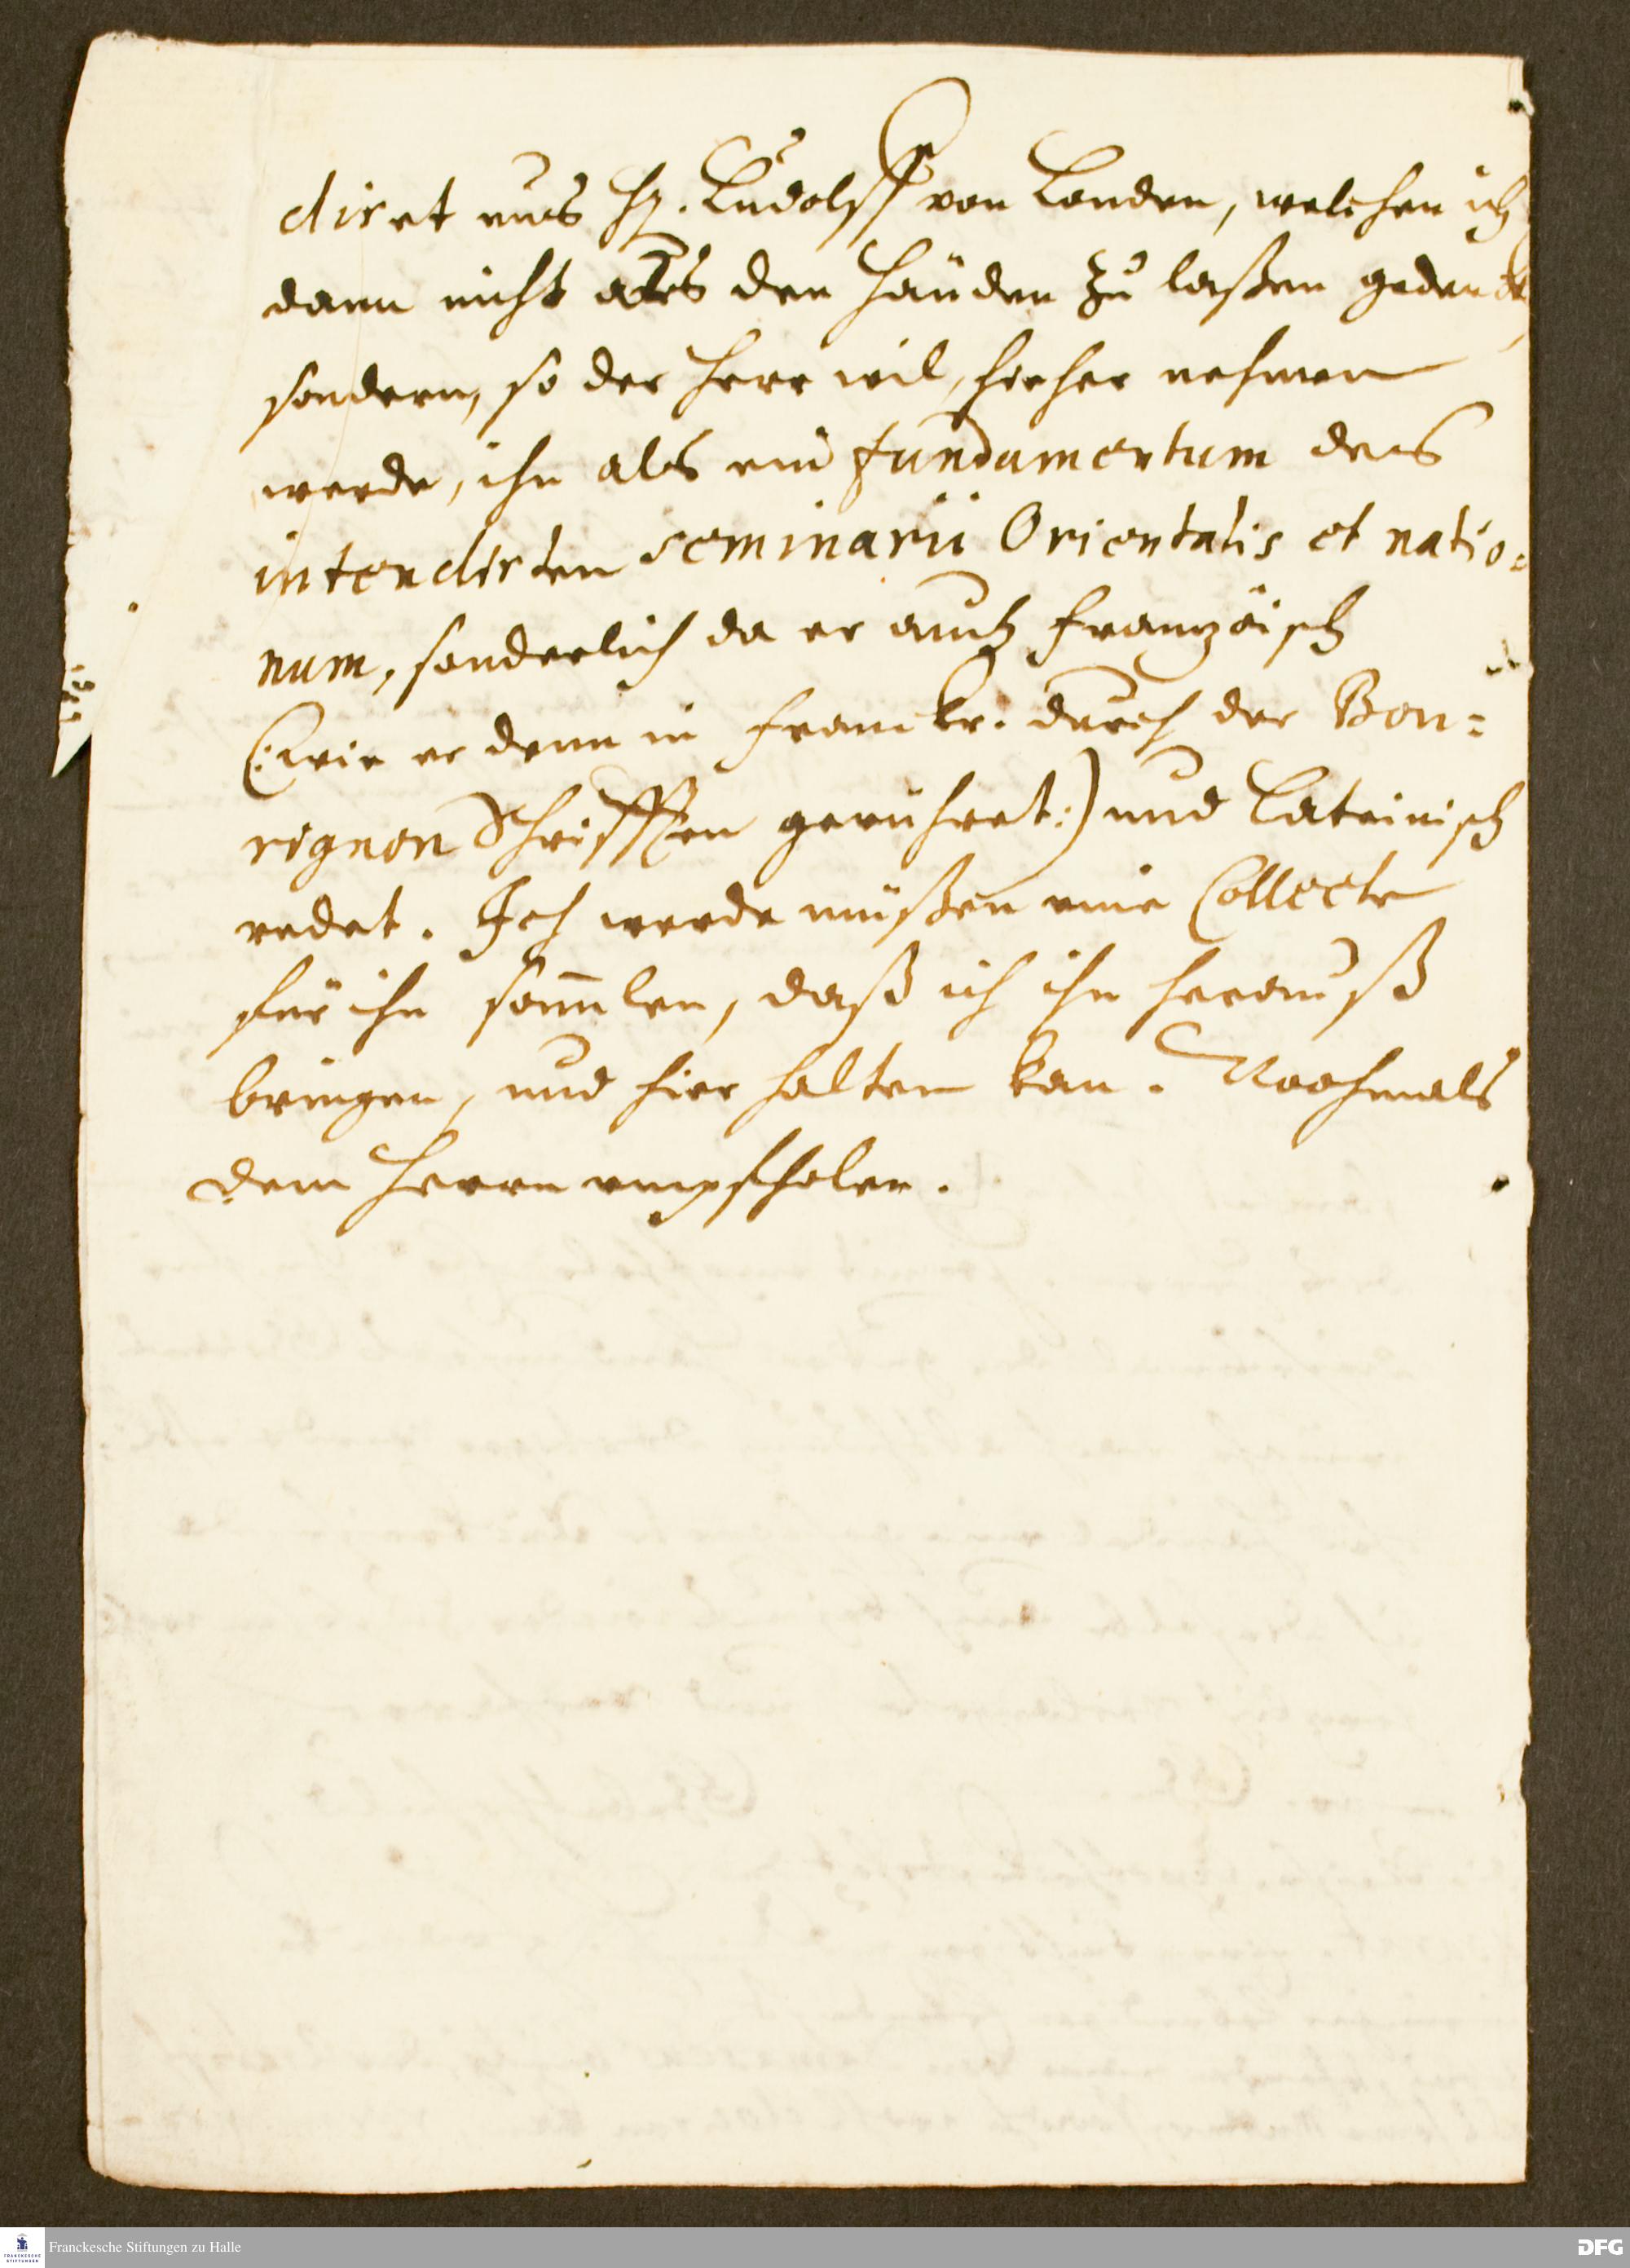 diret uns H. Ludolff von Londen, welchen ich
dann nicht aus den händen zu laßen gedencke
sondern, so der Herr wil, hieher nehmen
werde, ihn als ein fundamentum des
intendirten seminarii Orientalis et natio=
num, sonderlich da er auch französisch
(: wie er denn in Franckr. durch der Bou=
rignon Schrifften gerühret :) und Lateinisch
redet. Ich werde müßen eine Collecte
für ihn samlen, daß ich ihn herauß
bringen, und hier halten kan. Nochmals
dem Herrn empfholen.
Franckesche Stiftungen zu Halle
DFG